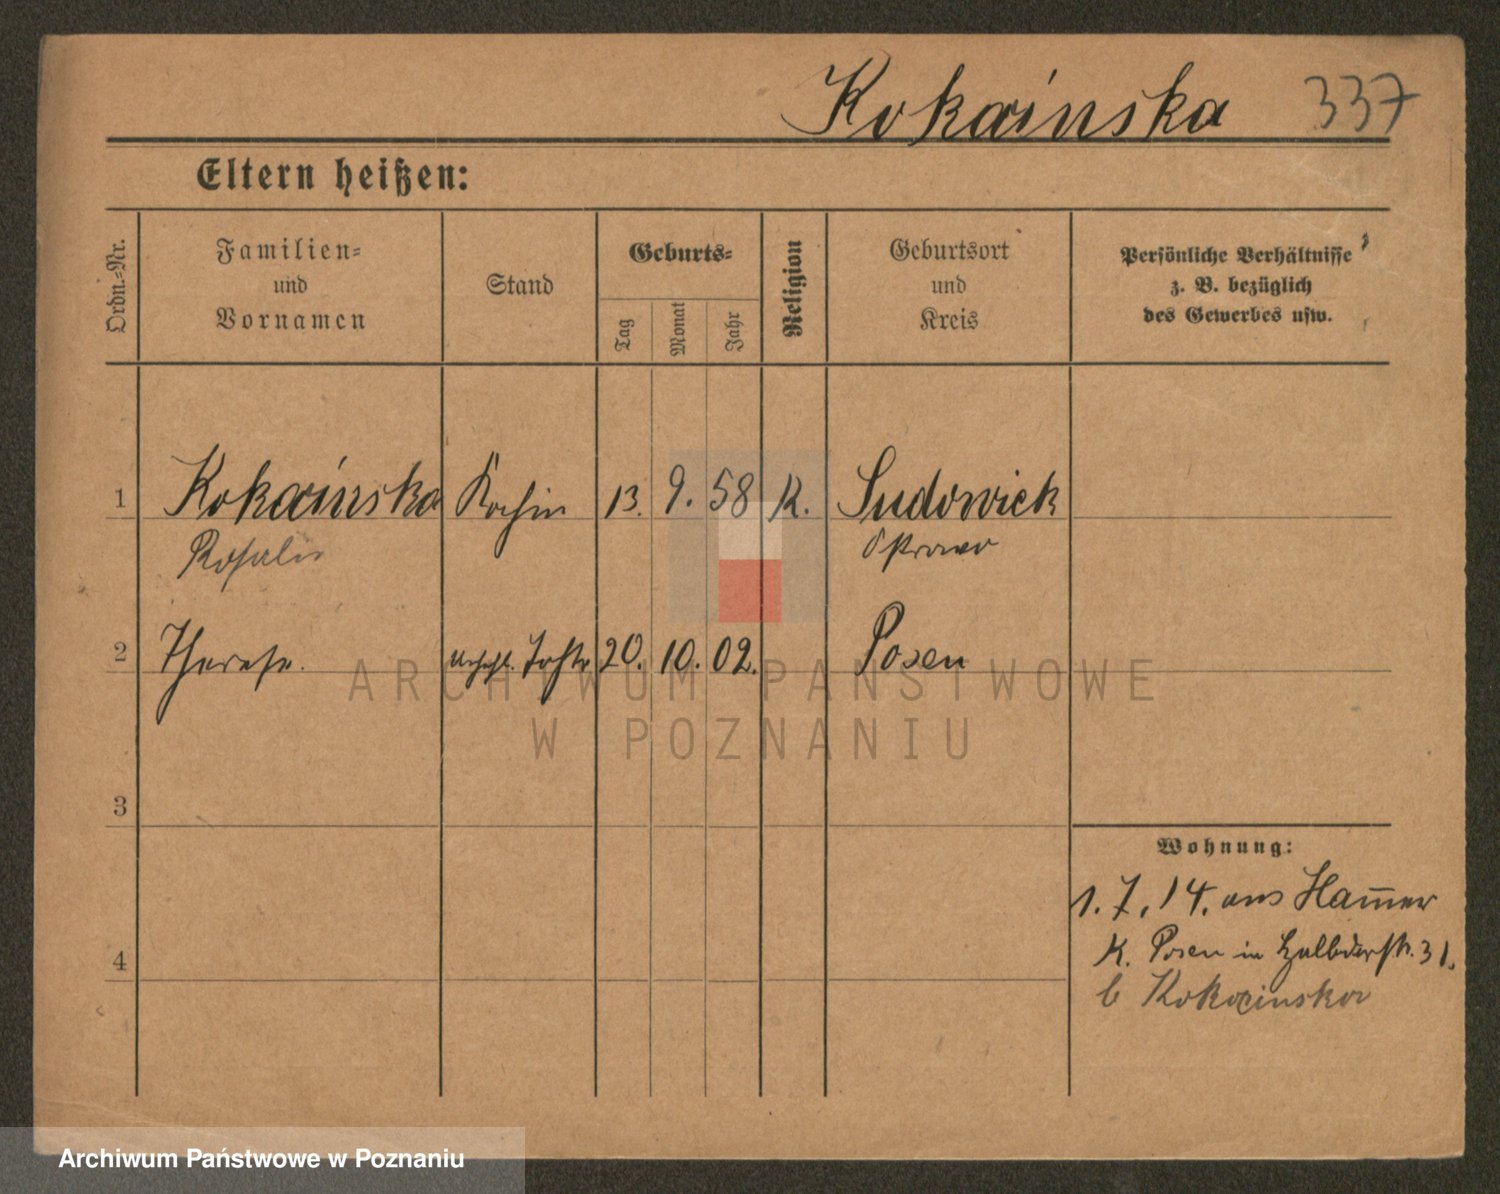 Kokocinska 337
Eltern heißen:
Ordn.-Nr.
Familien-
und
Vornamen
Stand
Geburts-
Tag
Monat
Jahr
Religion
Geburtsort
und
Kreis
Persönliche Verhältnisse
z. B. bezüglich
des Gewerbes usw.
1 Kokocinska Köchin 13. 9. 58 K. Sudowiek
Rosalie
2 Therese. unehel. Tocht. 20. 10. 02. Posen
3
4
Wohnung:
1. 7. 14. aus Ham̅er
K. Posen in 31.
b Kokocinska
ARCHIWUM PAŃSTWOWE
W POZNANIU
Archiwum Państwowe w Poznaniu